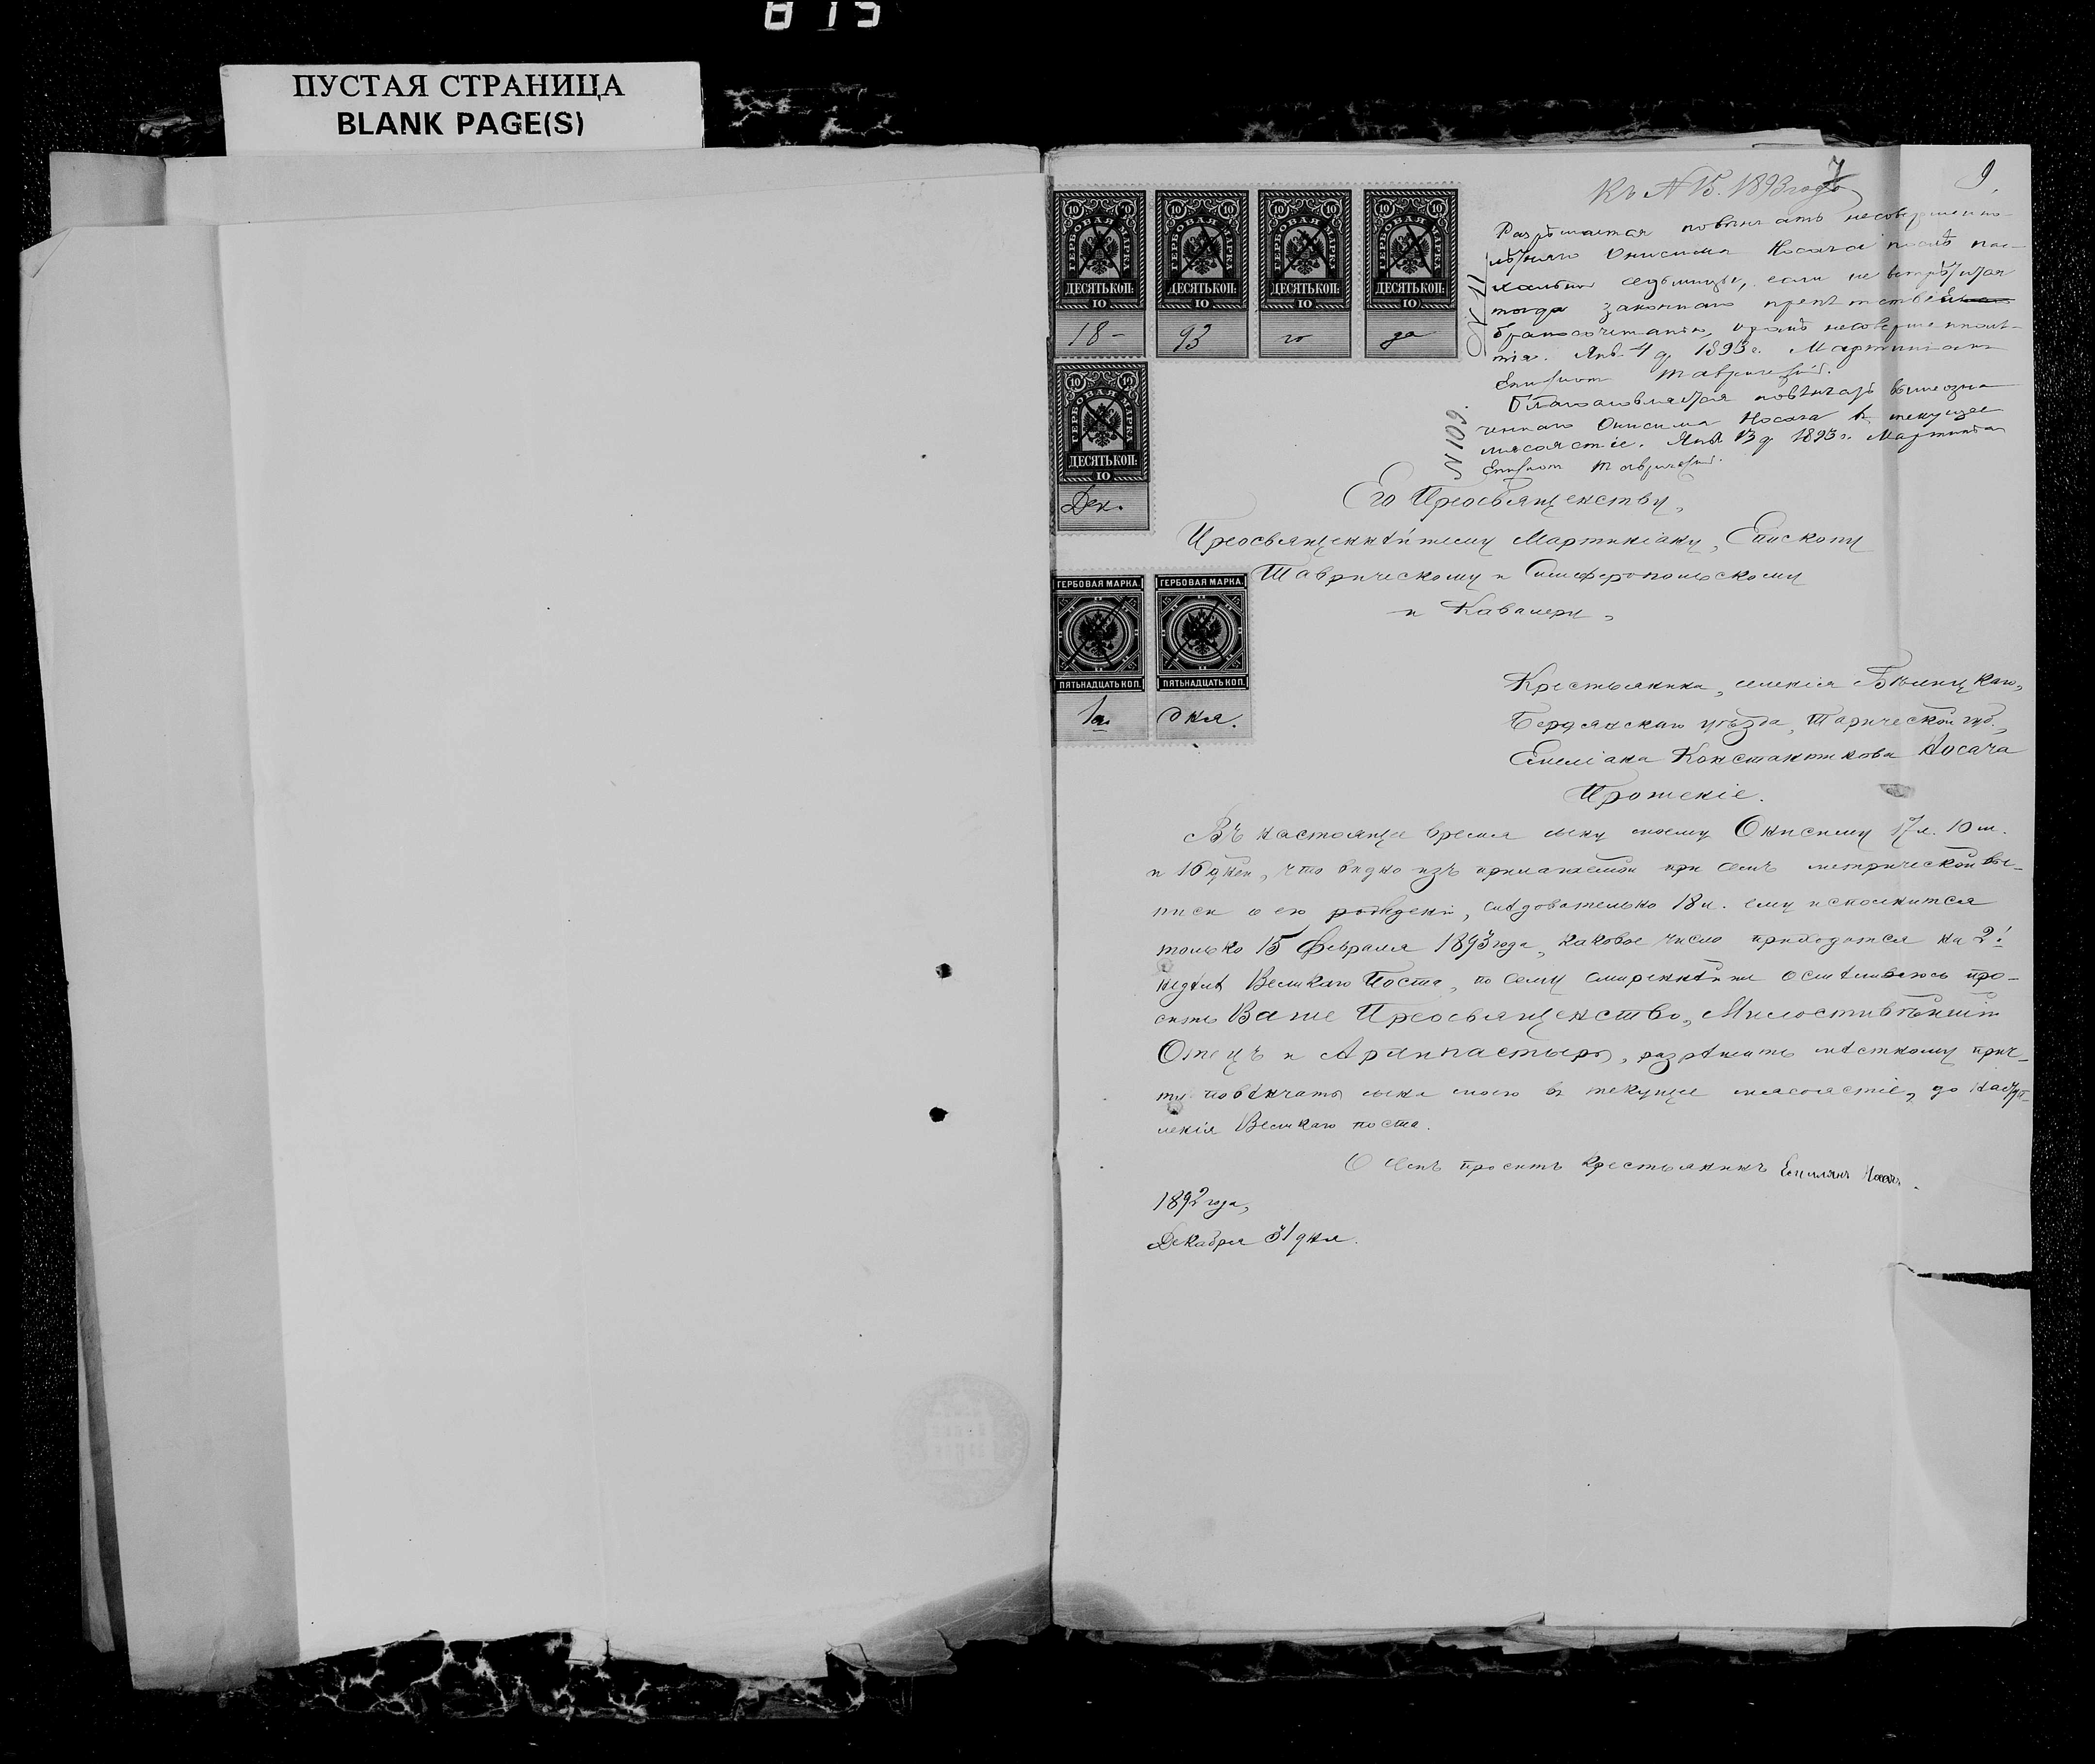 815
ПУСТАЯ СТРАНИЦА
BLANK PAGE(S)
Къ № 15. 1893 года
7
9.
ГЕРБОВАЯ МАРКА
ДЕСЯТЬ КОП:
10
18-
ГЕРБОВАЯ МАРКА
ДЕСЯТЬ КОП:
10
93
ГЕРБОВАЯ МАРКА
ДЕСЯТЬ КОП:
10
го
ГЕРБОВАЯ МАРКА
ДЕСЯТЬ КОП:
10
да
ГЕРБОВАЯ МАРКА
ДЕСЯТЬ КОП:
10
Дек.
ГЕРБОВАЯ МАРКА.
ПЯТЬНАДЦАТЬ КОП.
ГЕРБОВАЯ МАРКА.
ПЯТЬНАДЦАТЬ КОП.
дня.
Разрѣшается повѣнчать несовершенно-
лѣтняго Онисима Носача послѣ пас-
хальной седьмицы, если не встрѣтится
тогда законнаго препятствія
бракосочетанію, кромѣ несовершеннолѣ-
тія. Янв. 4 д. 1893 г. Мартиніанъ
Епископъ Таврическій.
Благословляется повѣнчать вышеозна-
ченнаго Онисима Носача въ текущее
мясоястіе. Янв. 13 д. 1893 г. Мартиніанъ
Епископъ Таврическій.
№ 109.
Его Преосвященству,
Преосвященнѣйшему Мартиніану, Епископу
Таврическому и Симферопольскому
и Кавалеру,
Крестьянина, селенія
Бердянскаго уѣзда, Таврической губ.,
Емеліана Константинова Носача
Прошеніе.
Въ настоящее время сыну моему Онисиму 17 л. 10 м.
и 16 дней, что видно изъ прилагаемой при семъ метрической вы-
писи о его рожденіи, слѣдовательно 18 л. ему исполнится
только 15 Февраля 1893 года, каковое число приходится на 2й
недѣлѣ Великаго Поста, по сему смиреннѣйше осмѣливаюсь про-
сить Ваше Преосвященство, Милостивѣйшій
Отецъ и Архипастырь, разрѣшить мѣстному прич-
ту повѣнчать сына моего въ текущее мясоястіе, до наступ-
ленія Великаго поста.
О семъ проситъ крестьянинъ Емилянъ Носачъ.
1892 года,
Декабря 31 дня.